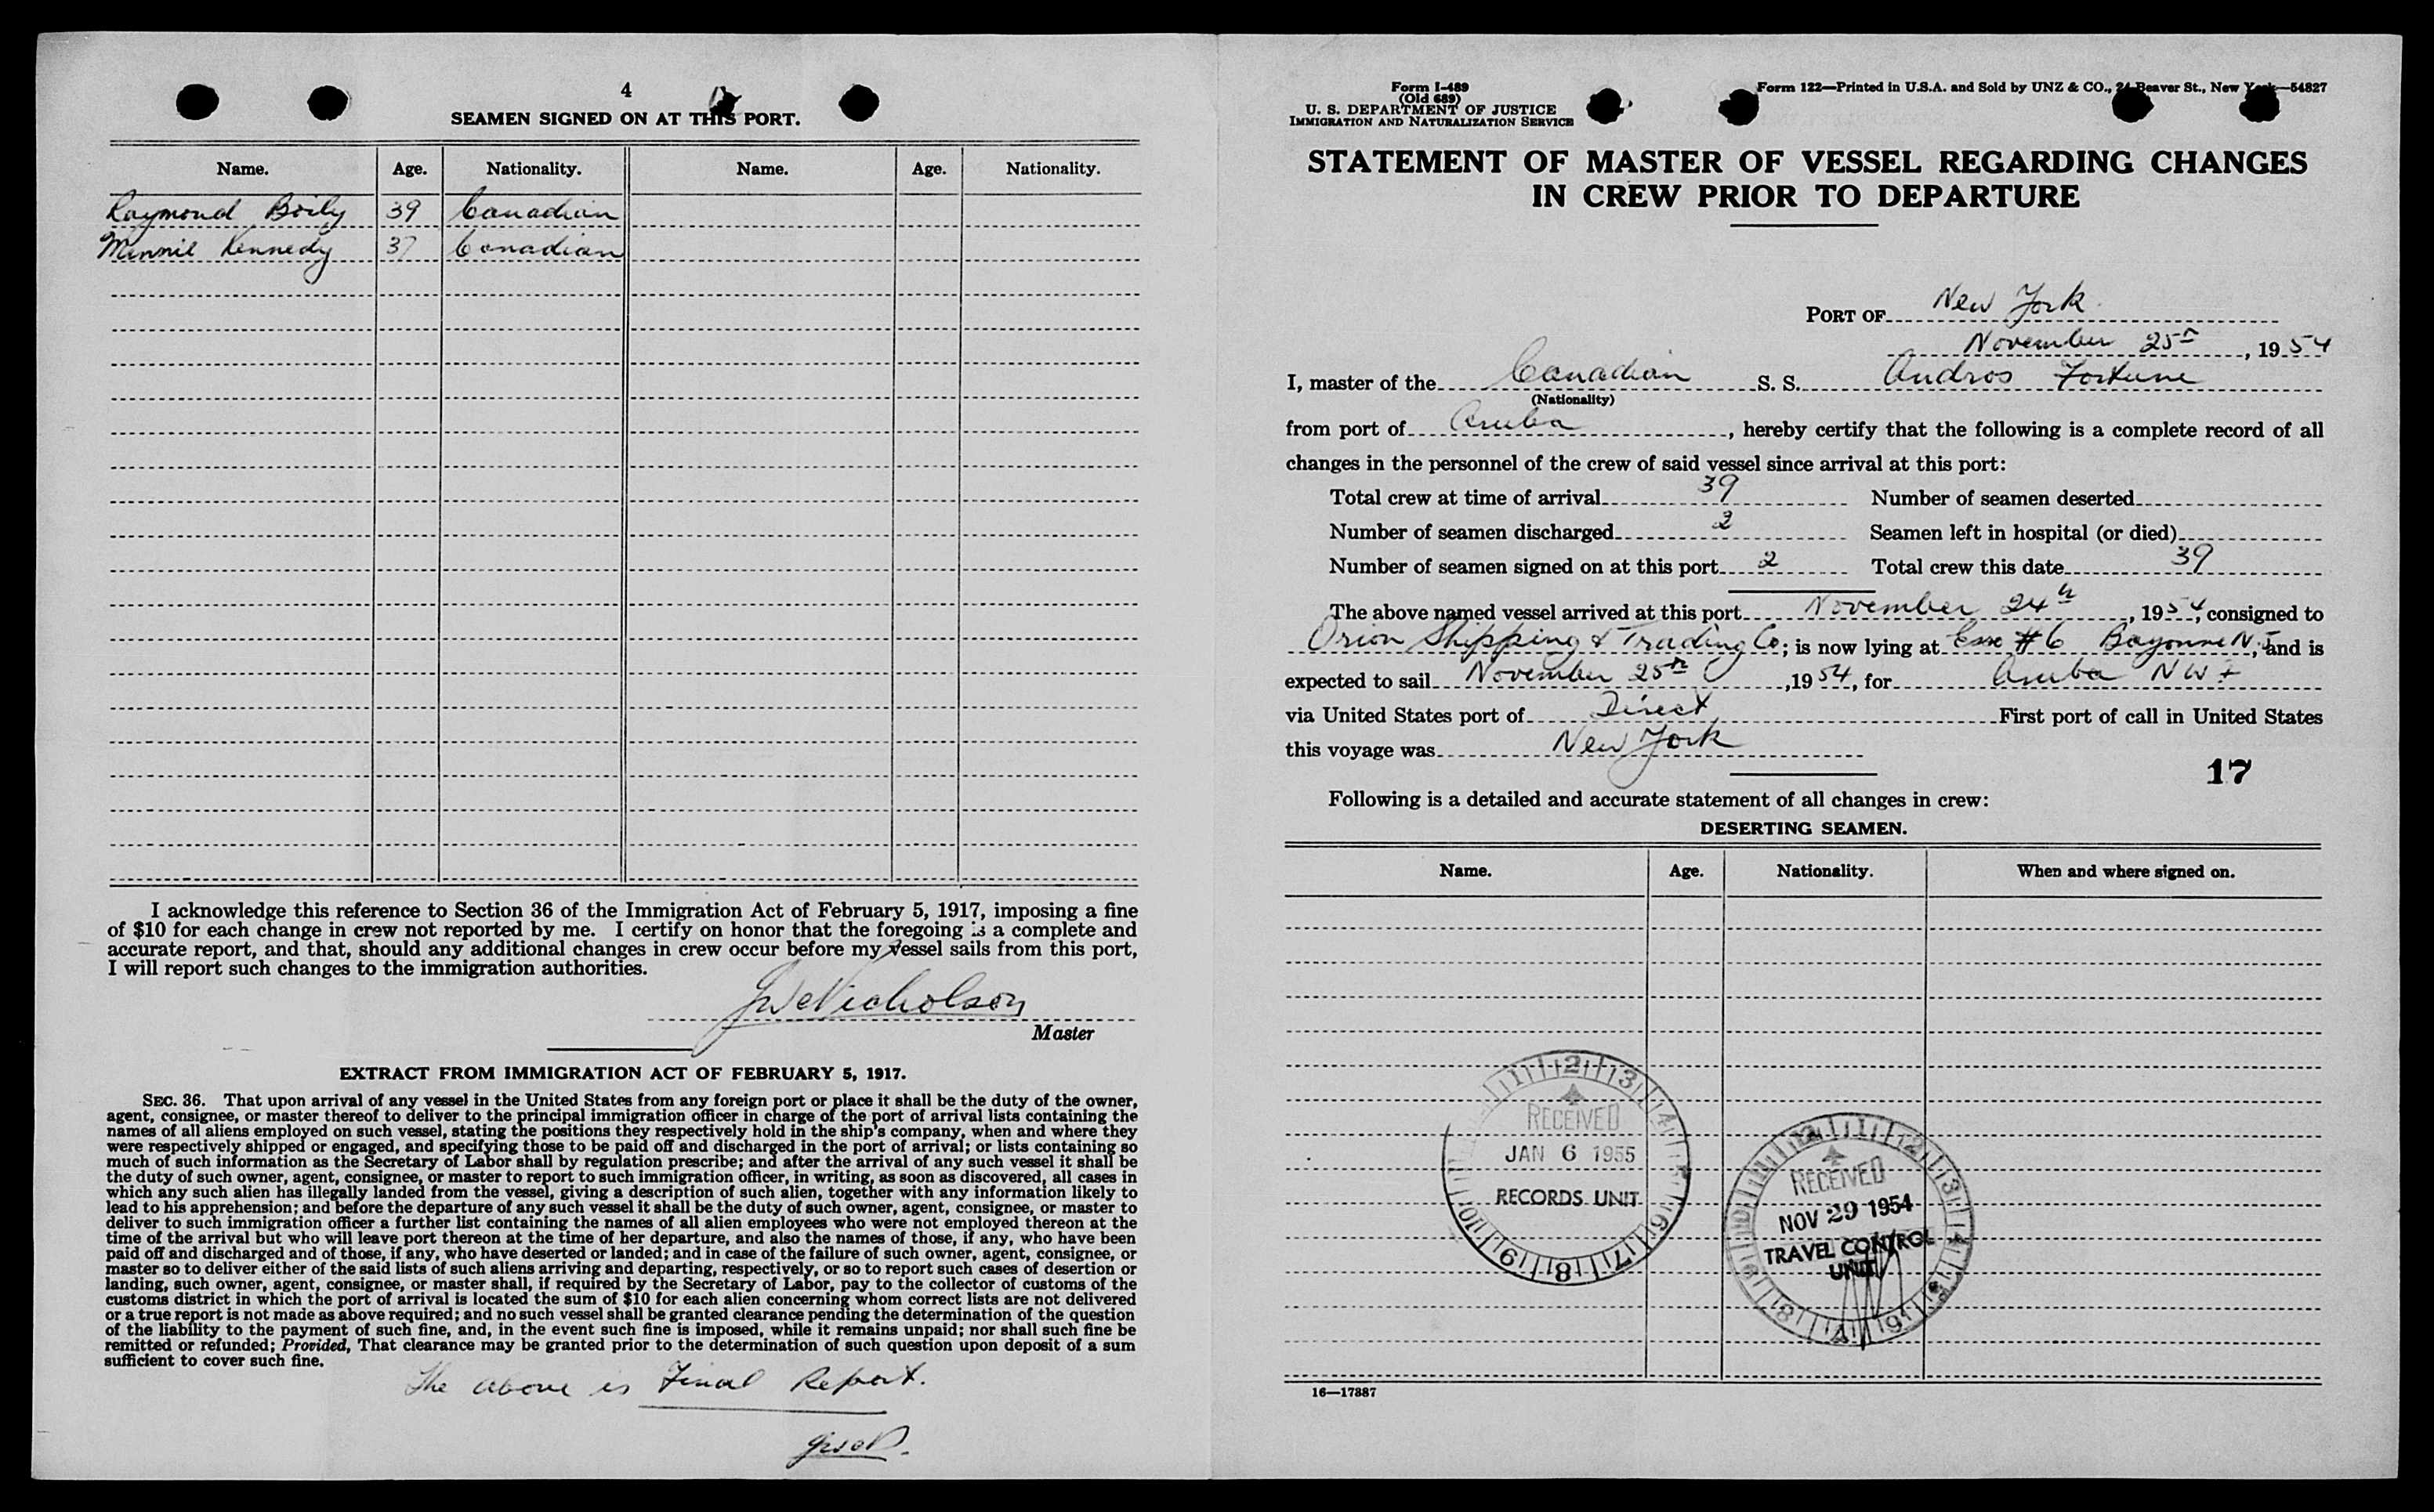 4
SEAMEN SIGNED ON AT THIS PORT.
Name. Age. Nationality. Name. Age. Nationality.
Raymond Boily 39 Canadian
Minnie Kennedy 37 Canadian
I acknowledge this reference to Section 36 of the Immigration Act of February 5, 1917, imposing a fine
of $10 for each change in crew not reported by me. I certify on honor that the foregoing is a complete and
accurate report, and that, should any additional changes in crew occur before my vessel sails from this port,
I will report such changes to the immigration authorities.
Nicholson
Master
EXTRACT FROM IMMIGRATION ACT OF FEBRUARY 5, 1917.
SEC. 36. That upon arrival of any vessel in the United States from any foreign port or place it shall be the duty of the owner,
agent, consignee, or master thereof to deliver to the principal immigration officer in charge of the port of arrival lists containing the
names of all aliens employed on such vessel, stating the positions they respectively hold in the ship's company, when and where they
were respectively shipped or engaged, and specifying those to be paid off and discharged in the port of arrival; or lists containing so
much of such information as the Secretary of Labor shall by regulation prescribe; and after the arrival of any such vessel it shall be
the duty of such owner, agent, consignee, or master to report to such immigration officer, in writing, as soon as discovered, all cases in
which any such alien has illegally landed from the vessel, giving a description of such alien, together with any information likely to
lead to his apprehension; and before the departure of any such vessel it shall be the duty of such owner, agent, consignee, or master to
deliver to such immigration officer a further list containing the names of all alien employees who were not employed thereon at the
time of the arrival but who will leave port thereon at the time of her departure, and also the names of those, if any, who have been
paid off and discharged and of those, if any, who have deserted or landed; and in case of the failure of such owner, agent, consignee, or
master so to deliver either of the said lists of such aliens arriving and departing, respectively, or so to report such cases of desertion or
landing, such owner, agent, consignee, or master shall, if required by the Secretary of Labor, pay to the collector of customs of the
customs district in which the port of arrival is located the sum of $10 for each alien concerning whom correct lists are not delivered
or a true report is not made as above required; and no such vessel shall be granted clearance pending the determination of the question
of the liability to the payment of such fine, and, in the event such fine is imposed, while it remains unpaid; nor shall such fine be
remitted or refunded; Provided, That clearance may be granted prior to the determination of such question upon deposit of a sum
sufficient to cover such fine.
The above is Final Report.
Form I-489
(Old 689)
U. S. DEPARTMENT OF JUSTICE
IMMIGRATION AND NATURALIZATION SERVICE
Form 122—Printed in U.S.A. and Sold by UNZ & CO., 24 Beaver St., New York—54827
STATEMENT OF MASTER OF VESSEL REGARDING CHANGES
IN CREW PRIOR TO DEPARTURE
PORT OF New York
November 25th, 1954
I, master of the Canadian S. S. Andros Fortune
(Nationality)
from port of Aruba, hereby certify that the following is a complete record of all
changes in the personnel of the crew of said vessel since arrival at this port:
Total crew at time of arrival 39 Number of seamen deserted
Number of seamen discharged 2 Seamen left in hospital (or died)
Number of seamen signed on at this port 2 Total crew this date 39
The above named vessel arrived at this port November 24th, 1954, consigned to
Orion Shipping & Trading Co; is now lying at Esso #6 Bayonne N.J, and is
expected to sail November 25th, 1954, for Aruba NWI
via United States port of Direct First port of call in United States
this voyage was New York
17
Following is a detailed and accurate statement of all changes in crew:
DESERTING SEAMEN.
Name. Age. Nationality. When and where signed on.
RECEIVED
JAN 6 1955
RECORDS UNIT
RECEIVED
NOV 29 1954
TRAVEL CONTROL
UNIT
16—17887